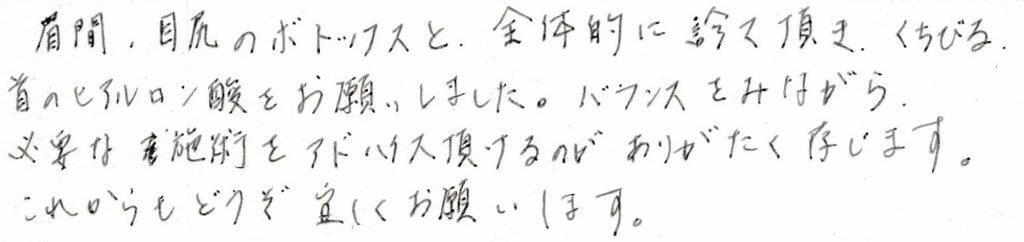 眉間、目尻のボトックスと、全体的に診て頂き、くちびる、
首のヒアルロン酸をお願いしました。バランスをみながら、
必要な施術をアドバイス頂けるのがありがたく存じます。
これからもどうぞ宜しくお願いします。